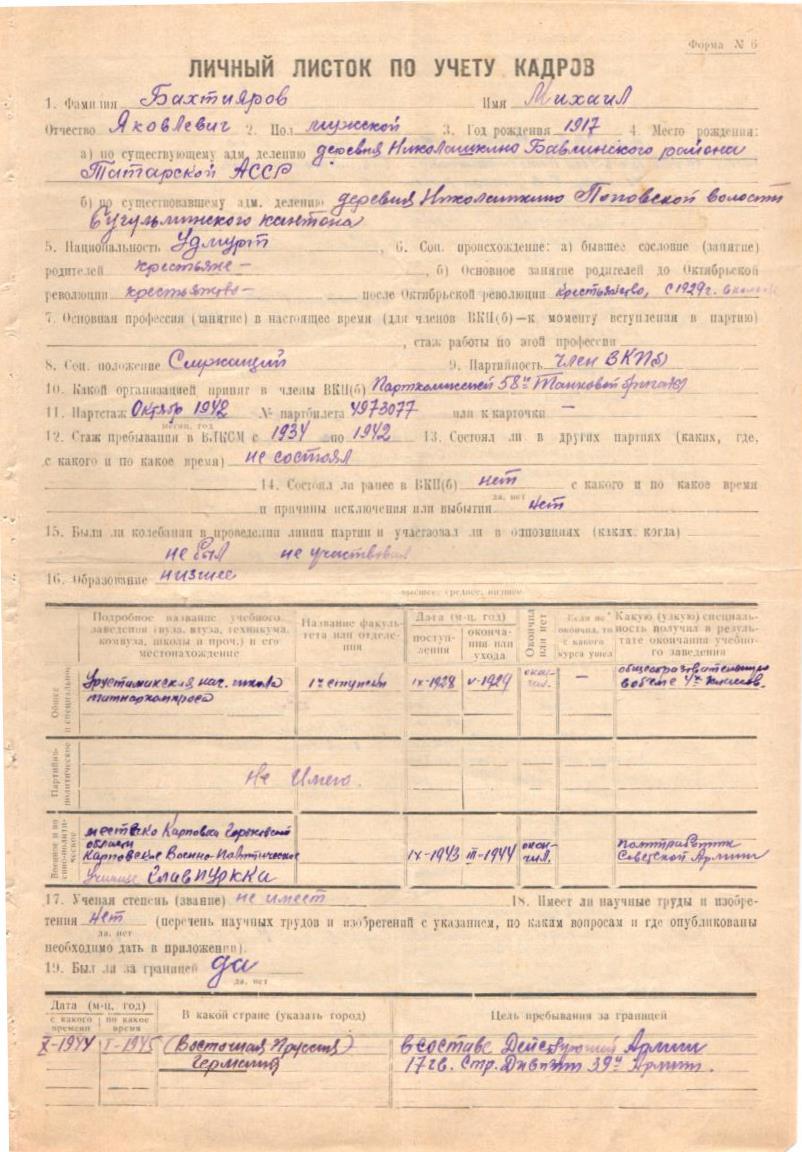 Форма № 6
ЛИЧНЫЙ ЛИСТОК ПО УЧЕТУ КАДРОВ
1. Фамилия Бахтияров Имя Михаил
Отчество Яковлевич 2. Пол мужской 3. Год рождения 1917 4. Место рождения:
а) по существующему адм. делению деревня Николашкино Бавлинского района
Татарской АССР
б) по существовавшему адм. делению деревня Николашкино Поповской волости
Бугульминского кантона
5. Национальность Удмурт, 6. Соц. происхождение: а) бывшее сословие (занятие)
родителей крестьяне –, б) Основное занятие родителей до Октябрьской
революции крестьянство – после Октябрьской революции крестьянство, с 1929г. в
7. Основная профессия (занятие) в настоящее время (для членов ВКП(б)—к моменту вступления в партию)
, стаж работы по этой профессии
8. Соц. положение Служащий 9. Партийность член ВКП(б)
10. Какой организацией принят в члены ВКП(б) Парткомиссией 58й Танковой бригады
11. Партстаж Октябрь 1942 № партбилета 4973077 или к карточки —
месяц, год
12. Стаж пребывания в ВЛКСМ с 1934 по 1942 13. Состоял ли в других партиях (каких, где,
с какого и по какое время) не состоял
14. Состоял ли ранее в ВКП(б) нет с какого и по какое время
да, нет
и причины исключения или выбытия нет
15. Были ли колебания в проведении линии партии и участвовал ли в оппозициях (каких, когда)
не был не участвовал
16. Образование низшее
высшее, среднее, низшее
Подробное название учебного заведения (вуза, втуза, техникума, комвуза, школы и проч.) и его местонахождение
Название факультета или отделения
Дата (м-ц, год)
поступления
окончания или ухода
Окончил или нет
Если не окончил, то с какого курса ушел
Какую (узкую) специальность получил в результате окончания учебного заведения
Общее и специальное
Урустамакская нач. школа
татнаркомпроса
1й ступени
IX-1928
V-1929
окончил.
—
общеобразовательную
в объеме 4х классов.
Партийно-политическое
Не Имею.
Военное и военно-политическое
местечко Карповка Горьковской
области
Карповское Военно-Политическое
Училище ГлавПУРККА
IX-1943
III-1944
окончил.
политработник
Советской Армии
17. Ученая степень (звание) не имеет 18. Имеет ли научные труды и изобретения
нет (перечень научных трудов и изобретений с указанием, по каким вопросам и где опубликованы
да, нет
необходимо дать в приложении).
19. Был ли за границей да
да, нет
Дата (м-ц, год)
с какого времени
по какое время
В какой стране (указать город)
Цель пребывания за границей
X-1944 I-1945 (Восточная Пруссия) в составе Действующей Армии
Германия 17 гв. Стр. Дивизии 39й Армии.